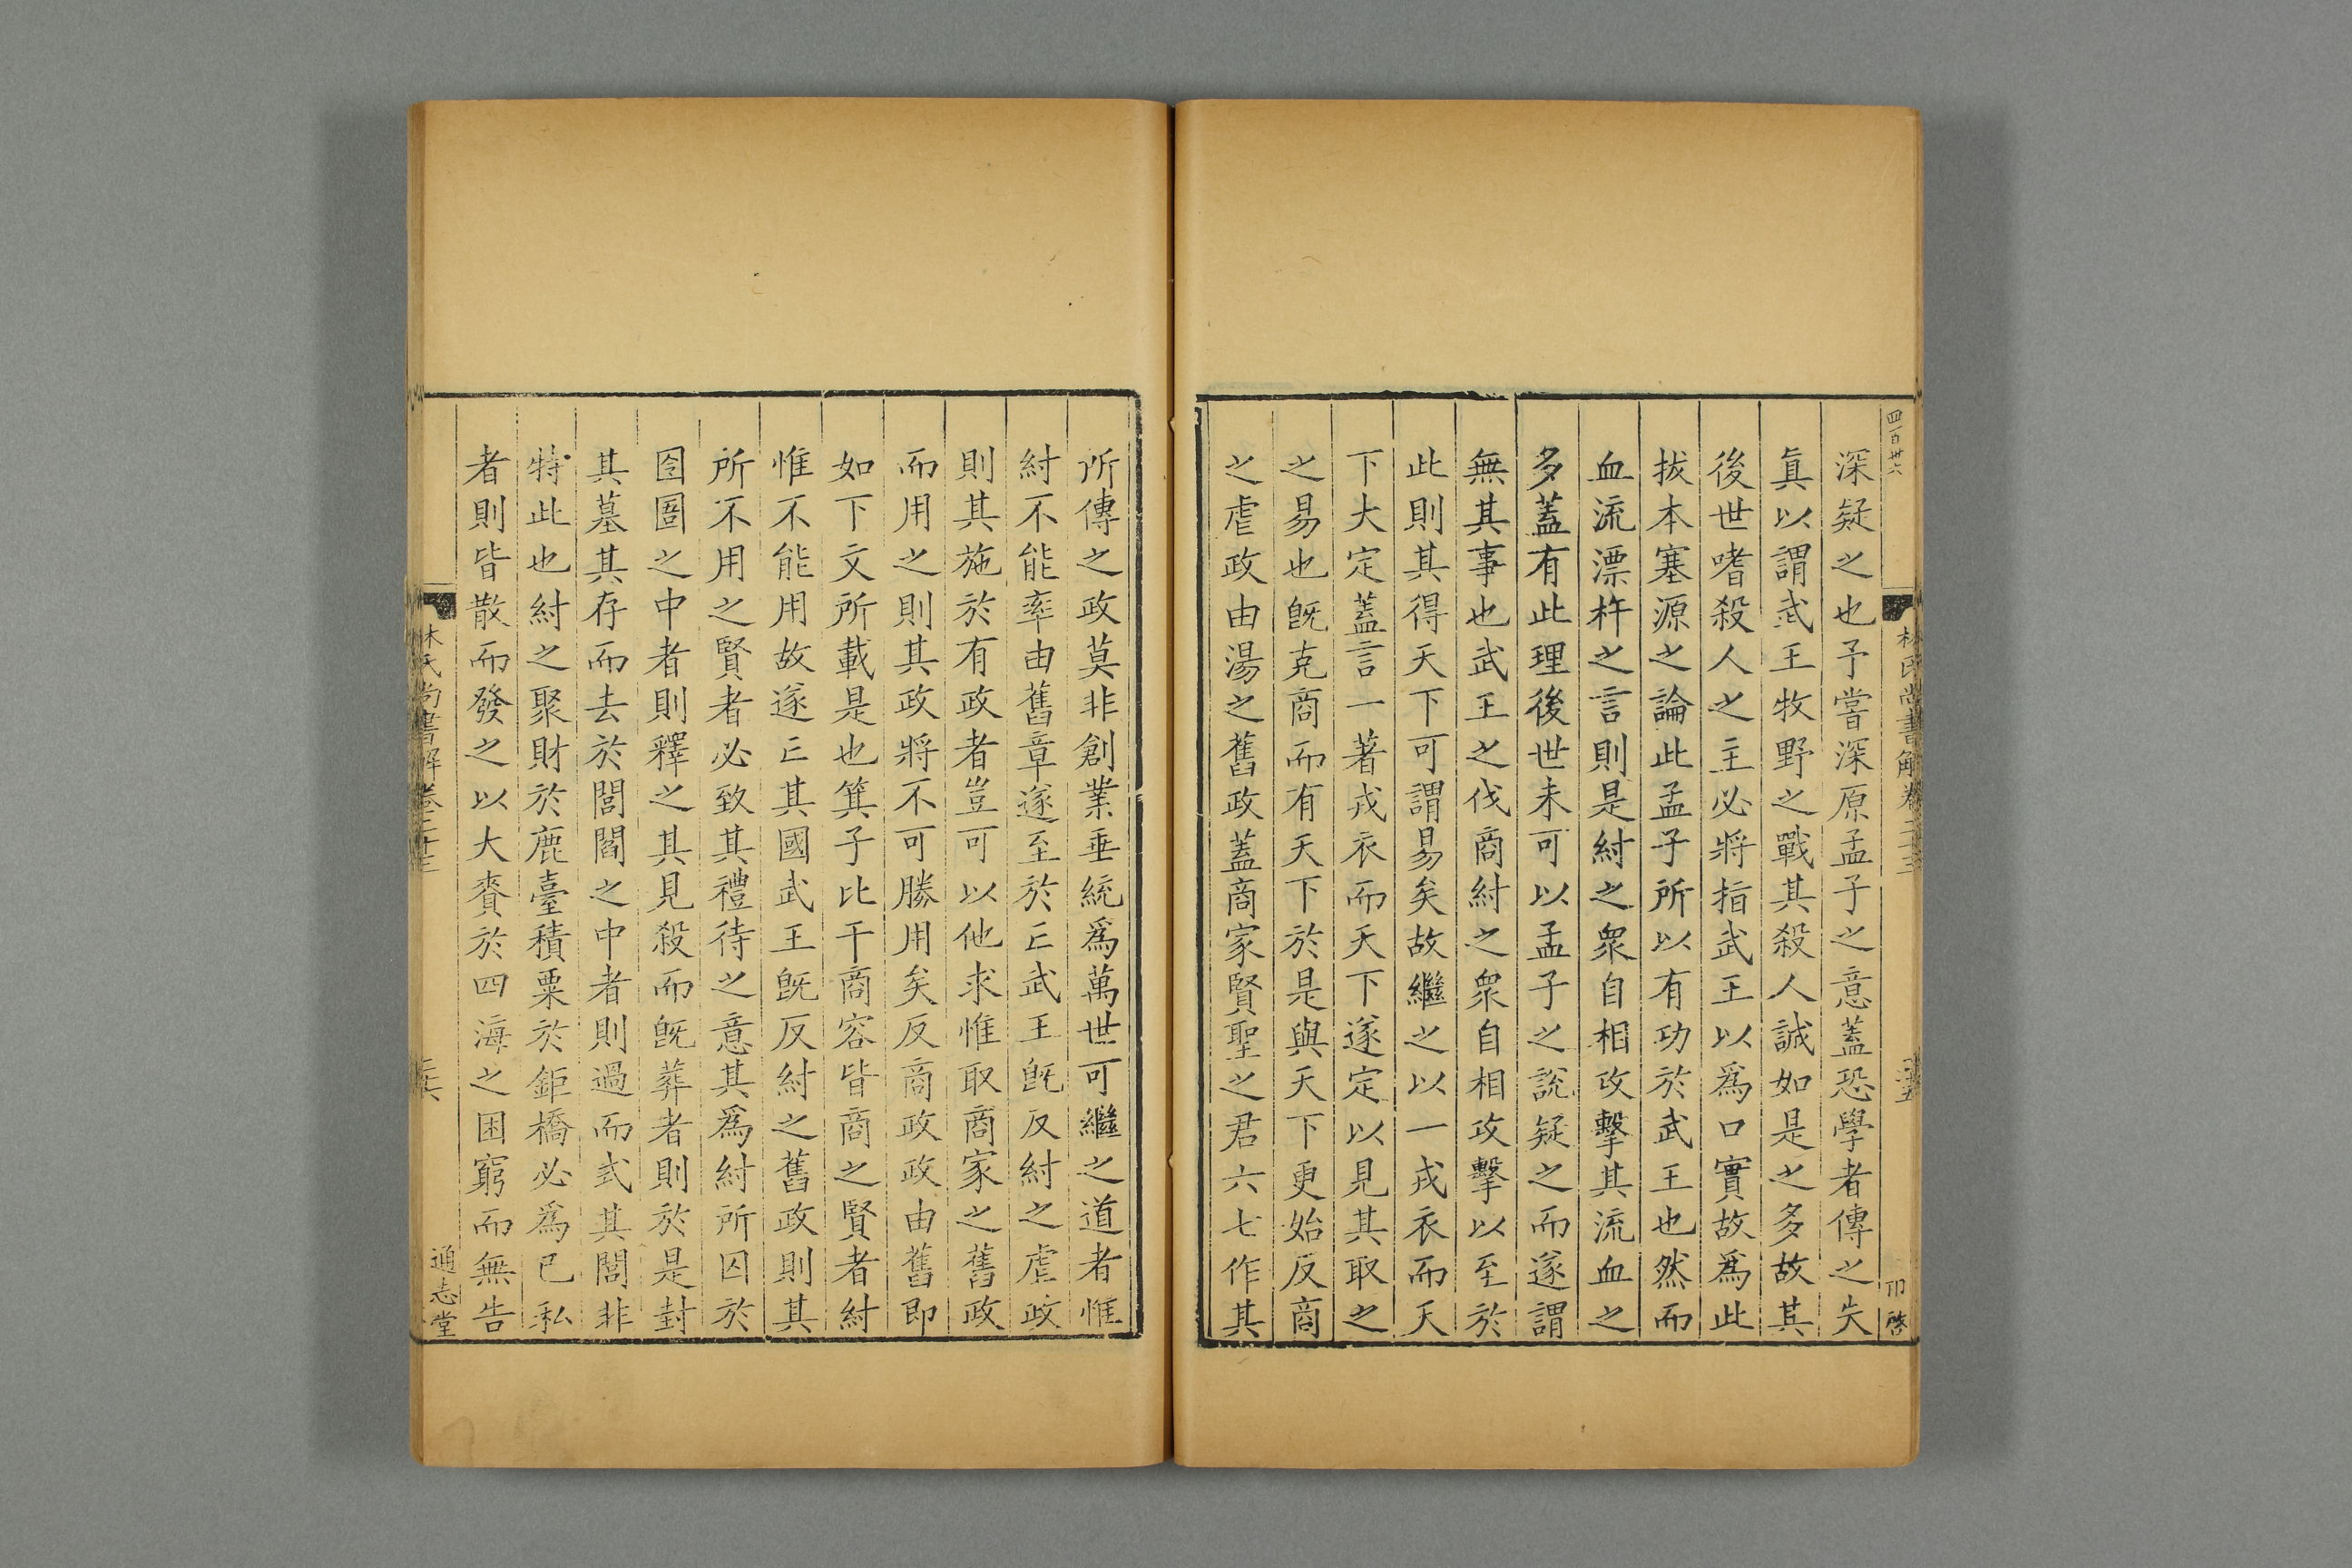 四百卅六
林氏尚書解卷二十三
深疑之也予嘗深原孟子之意蓋恐學者傳之失
眞以謂武王牧野之戰其殺人誠如是之多故其
後世嗜殺人之主必將指武王以爲口實故爲此
拔本塞源之論此孟子所以有功於武王也然而
血流漂杵之言則是紂之衆自相攻擊其流血之
多蓋有此理後世未可以孟子之說疑之而遂謂
無其事也武王之伐商紂之衆自相攻擊以至於
此則其得天下可謂易矣故繼之以一戎衣而天
下大定蓋言一著戎衣而天下遂定以見其取之
之易也旣克商而有天下於是與天下更始反商
之虐政由湯之舊政蓋商家賢聖之君六七作其
所傳之政莫非創業垂統爲萬世可繼之道者惟
紂不能率由舊章遂至於亡武王旣反紂之虐政
則其施於有政者豈可以他求惟取商家之舊政
而用之則其政將不可勝用矣反商政政由舊即
如下文所載是也箕子比干商容皆商之賢者紂
惟不能用故遂亡其國武王旣反紂之舊政則其
所不用之賢者必致其禮待之意其爲紂所囚於
囹圄之中者則釋之其見殺而旣葬者則於是封
其墓其存而去於閭閻之中者則過而式其閭非
特此也紂之聚財於鹿臺積粟於鉅橋必爲已私
者則皆散而發之以大賚於四海之困窮而無告
林氏尚書解卷二十三
通志堂